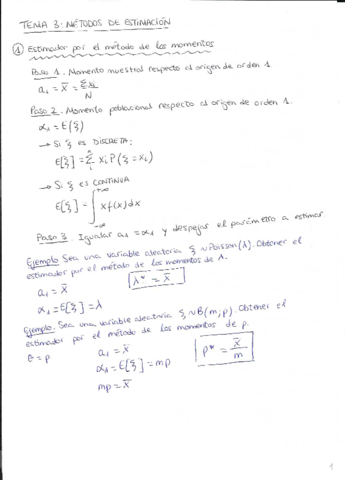 TEMA 3: MÉTODOS DE ESTIMACIÓN
① Estimador por el método de los momentos
Paso 1. Momento muestral respecto al origen de orden 1.
a₁ = x̄ = Σxi / N
Paso 2. Momento poblacional respecto al origen de orden 1.
α₁ = E(ξ)
→ Si ξ es DISCRETA:
E[ξ] = Σ xi P(ξ = xi)
→ Si ξ es CONTINUA
E[ξ] = ∫ x f(x) dx
Paso 3. Igualar a₁ = α₁ y despejar el parámetro a estimar
Ejemplo Sea una variable aleatoria ξ ~ Poisson(λ). Obtener el
estimador por el método de los momentos de λ.
a₁ = x̄
λ* = x̄
α₁ = E[ξ] = λ
Ejemplo. Sea una variable aleatoria ξ ~ B(m, p). Obtener el
estimador por el método de los momentos de p.
θ = p
a₁ = x̄
α₁ = E[ξ] = mp
mp = x̄
p* = x̄ / m
1